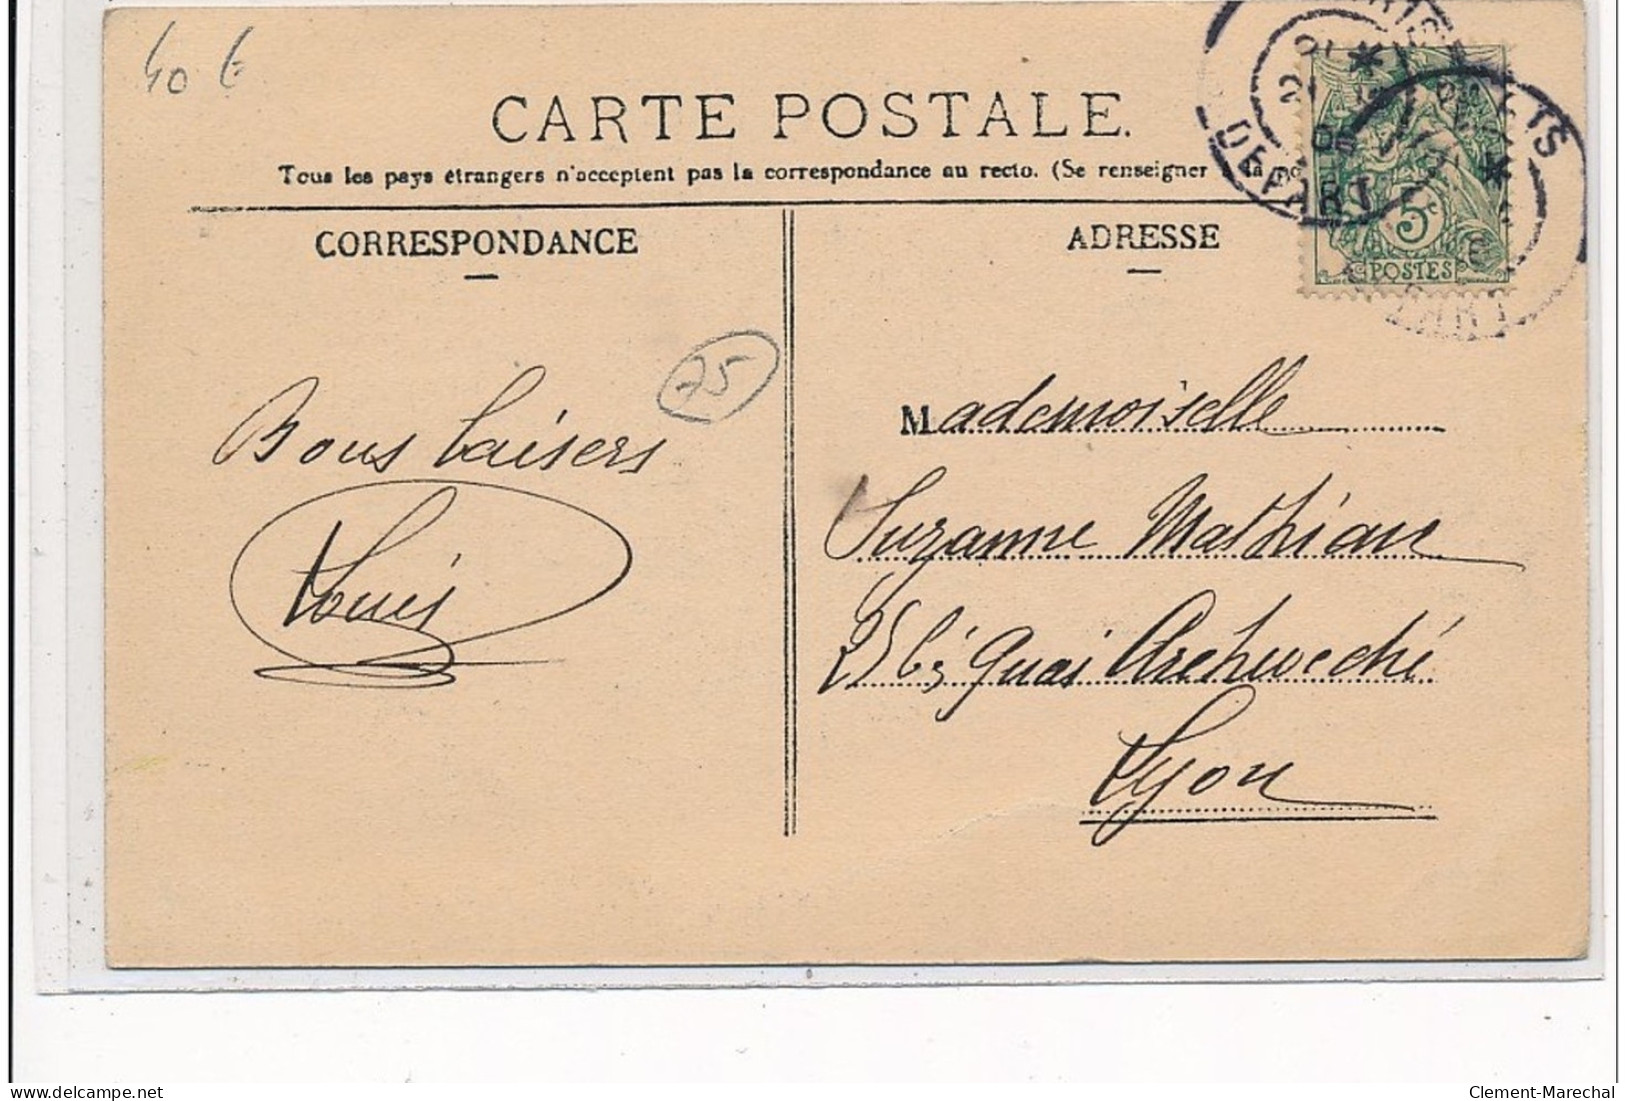 40 €
CARTE POSTALE.
Tous les pays étrangers n'acceptent pas la correspondance au recto. (Se renseigner
CORRESPONDANCE
ADRESSE
DÉPART
5c
POSTES
75
Bons baisers
Louis
Mademoiselle
Suzanne Mathian
25 bis Quai Archevêché
Lyon
Clement-Marechal